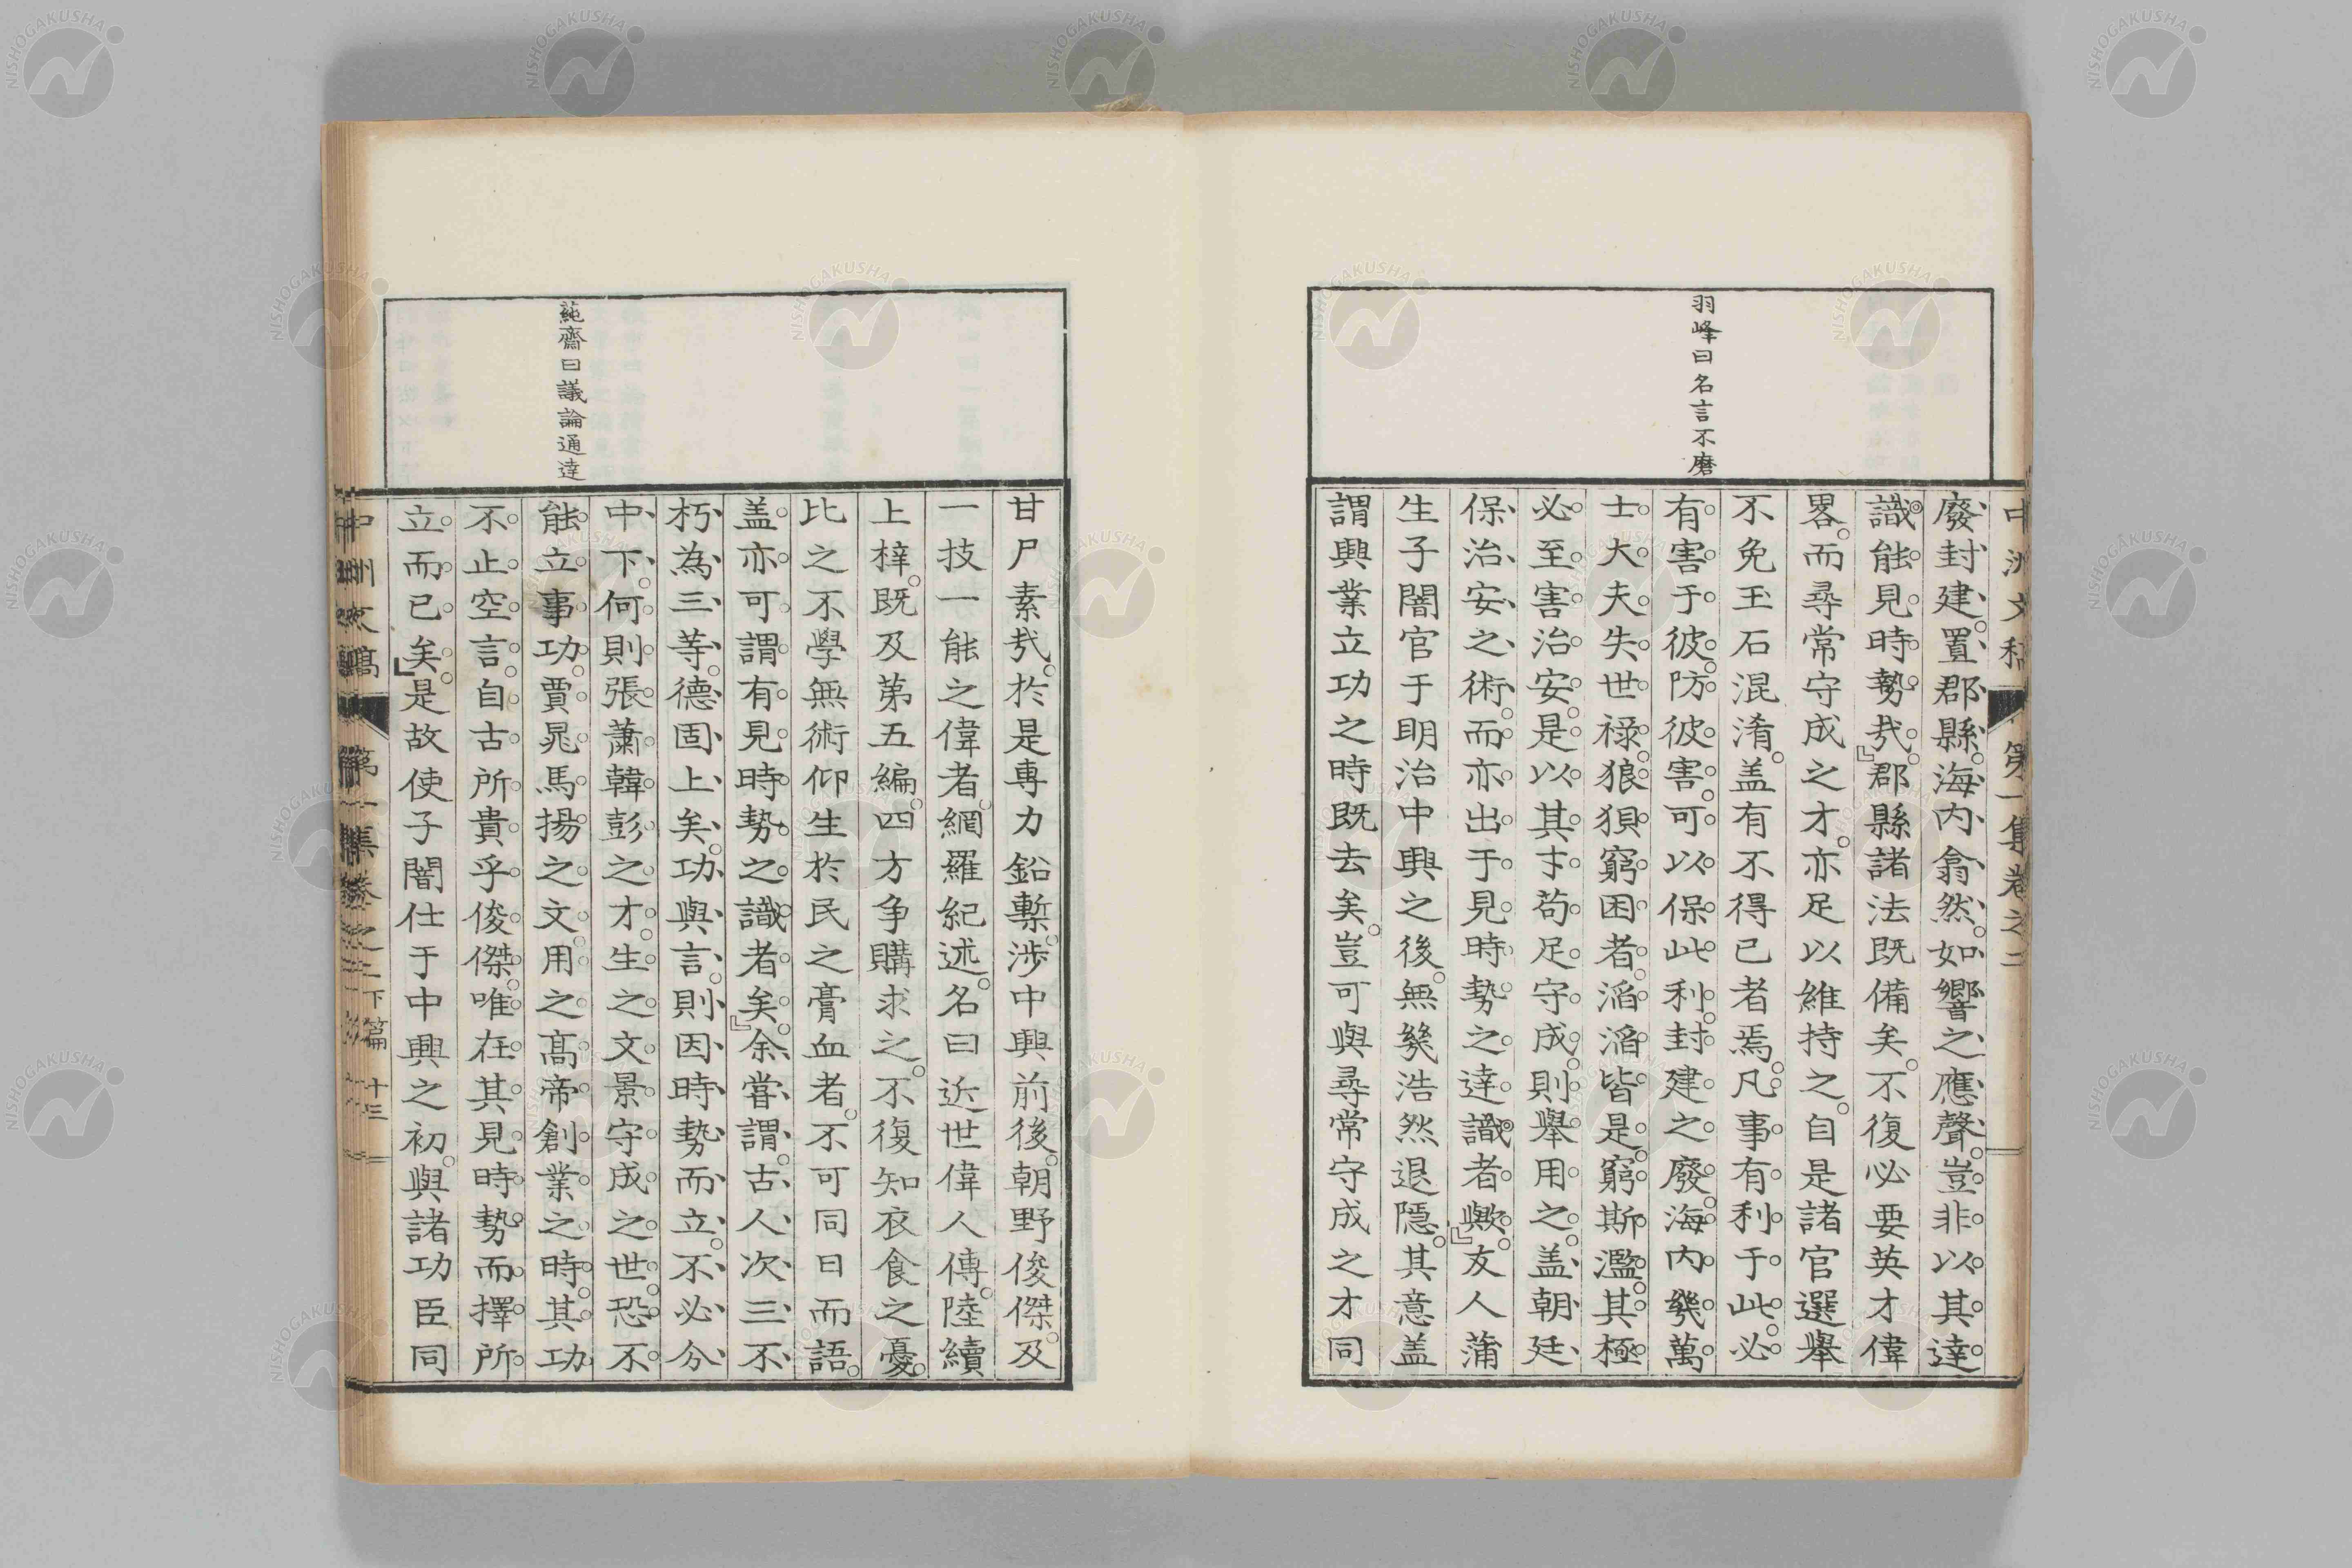 羽峰曰名言不磨
廢封建置郡縣海内翕然如響之應聲豈非以其達
識能見時勢哉郡縣諸法既備矣不復必要英才偉
畧而尋常守成之才亦足以維持之自是諸官選舉
不免玉石混淆盖有不得已者焉凡事有利于此必
有害于彼防彼害可以保此利封建之廢海内幾萬
士大夫失世禄狼狽窮困者滔滔皆是窮斯濫其極
必至害治安是以其才苟足守成則舉用之盖朝廷
保治安之術而亦出于見時勢之達識者歟友人蒲
生子闇官于明治中興之後無幾浩然退隱其意盖
謂興業立功之時既去矣豈可與尋常守成之才同
中洲文稿 第一集卷之二
蒓齋曰議論通達
甘尸素哉於是專力鉛槧涉中興前後朝野俊傑及
一技一能之偉者網羅紀述名曰近世偉人傳陸續
上梓既及第五編四方争購求之不復知衣食之憂
比之不學無術仰生於民之膏血者不可同日而語
盖亦可謂有見時勢之識者矣余嘗謂古人次三不
朽為三等德固上矣功與言則因時勢而立不必分
中下何則張蕭韓彭之才生之文景守成之世恐不
能立事功賈晁馬揚之文用之髙帝創業之時其功
不止空言自古所貴乎俊傑唯在其見時勢而擇所
立而已矣是故使子闇仕于中興之初與諸功臣同
中洲文稿 第一集卷之二 下篇 十三
NISHOGAKUSHA